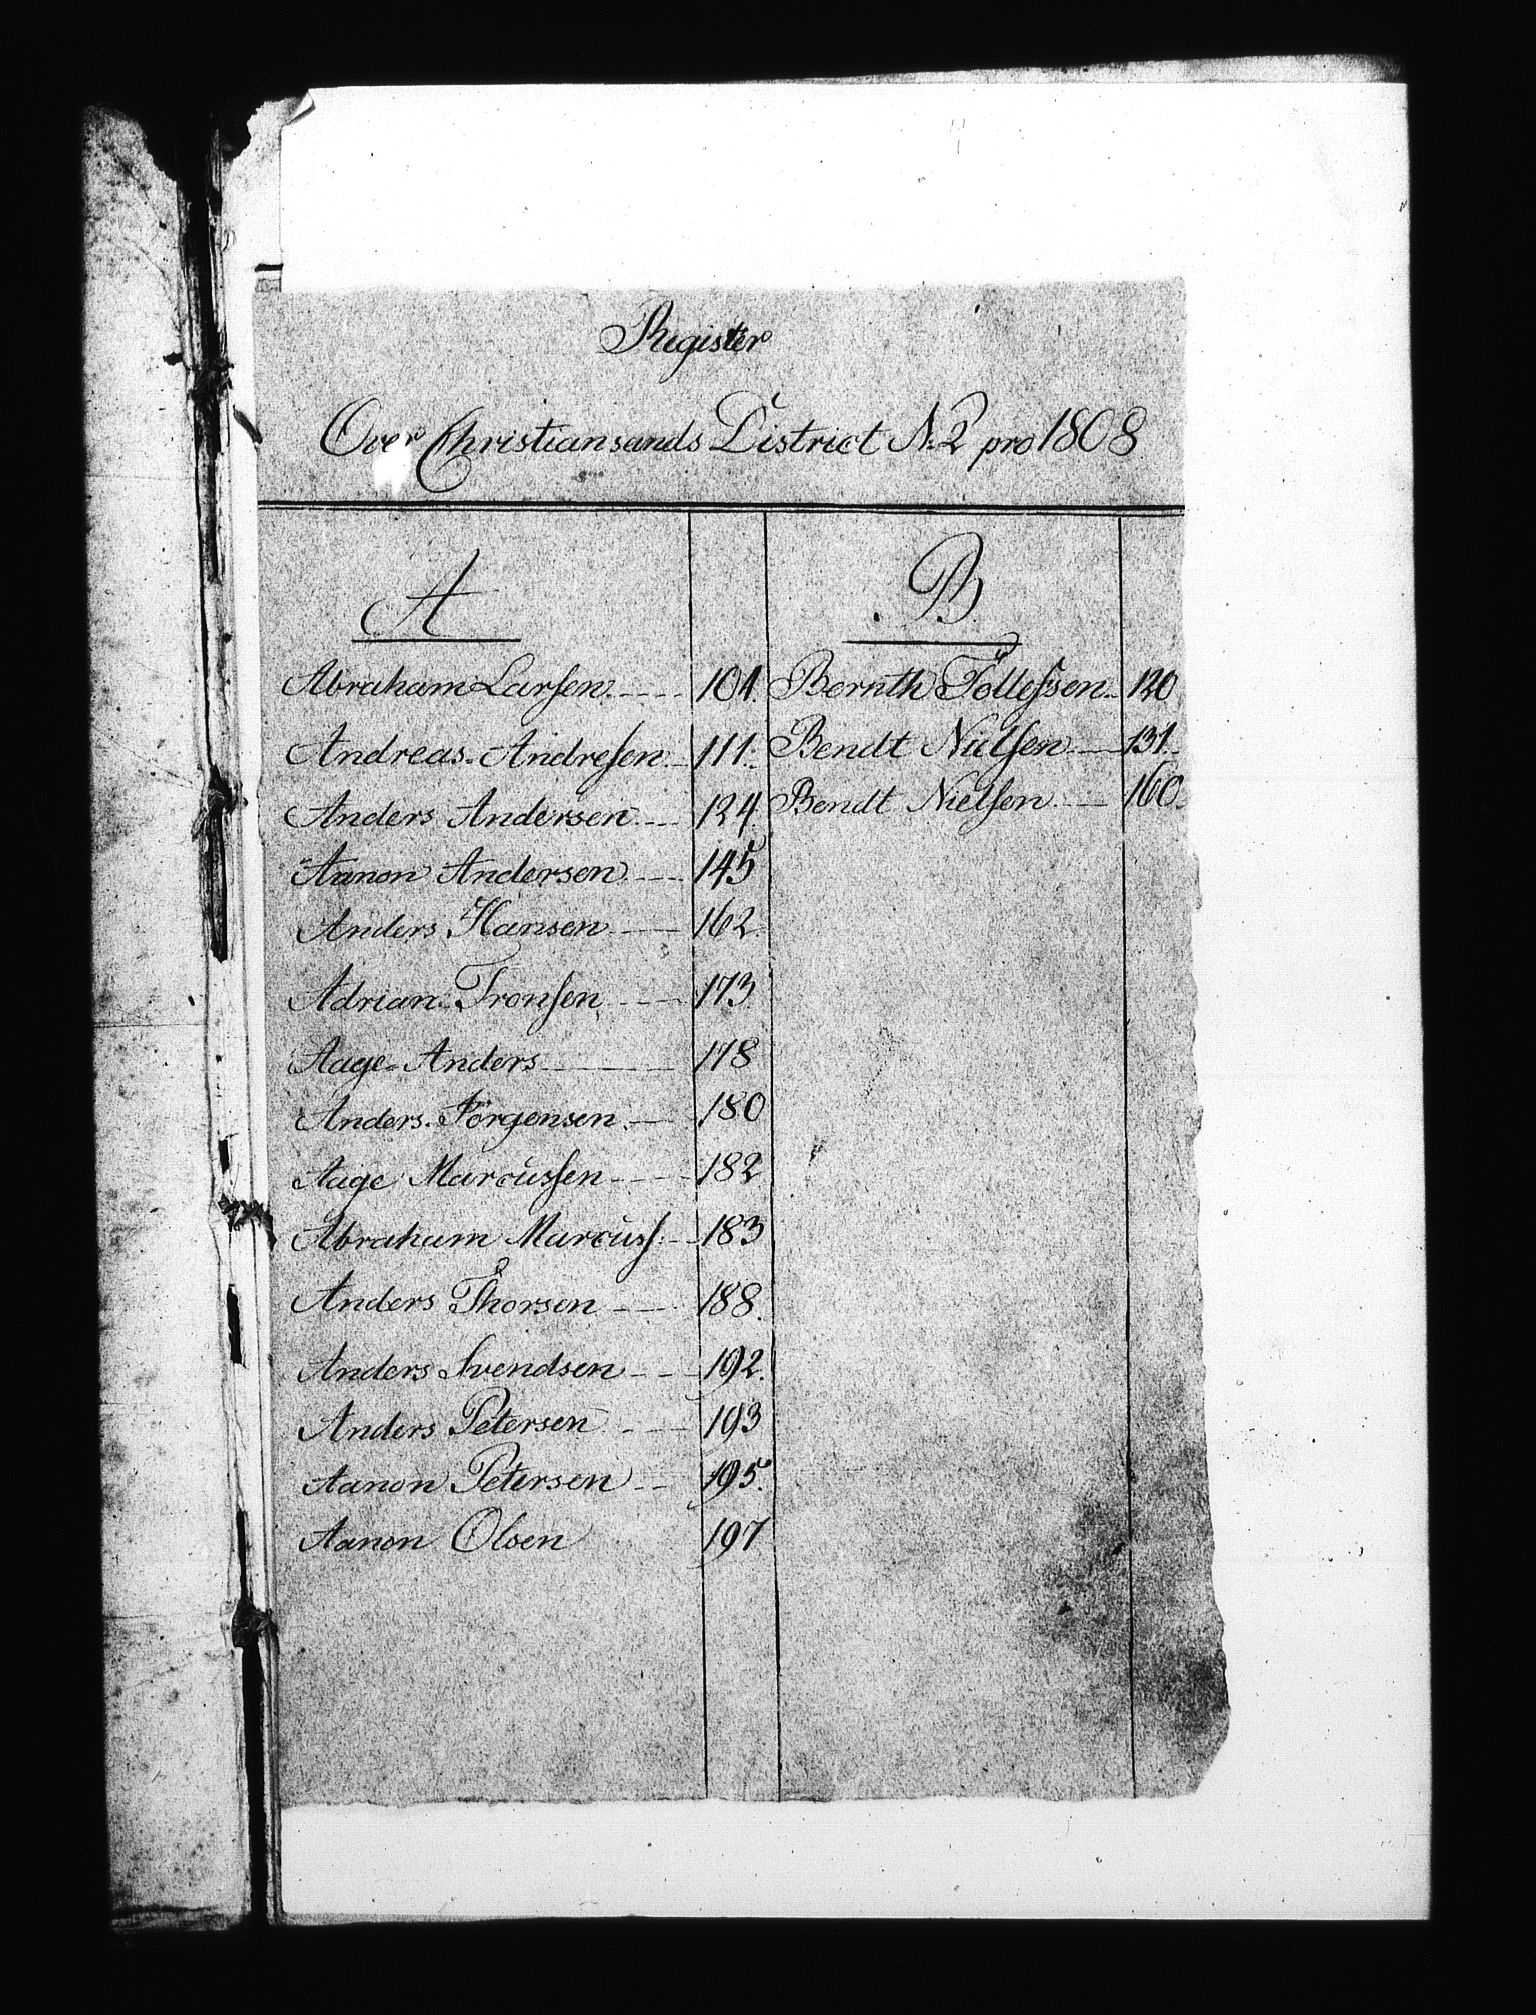 Register
Over Christiansands District No 2 pro 1808
A
Abraham Larsen 104.
Andreas Andresen 111.
Anders Andersen 124.
Aanon Andersen 145
Anders Hansen 162.
Adrian Tronsen 173.
Aage Anders 178
Anders Jörgensen 180
Aage Marcussen 182
Abraham Marcuss: 183
Anders Thorsen 188.
Anders Svendsen 192.
Anders Petersen 193
Aanon Petersen 195.
Aanon Olsen 197
B.
Bernth Tollefssen 120
Bendt Nielsen 131.
Bendt Nielsen 160.